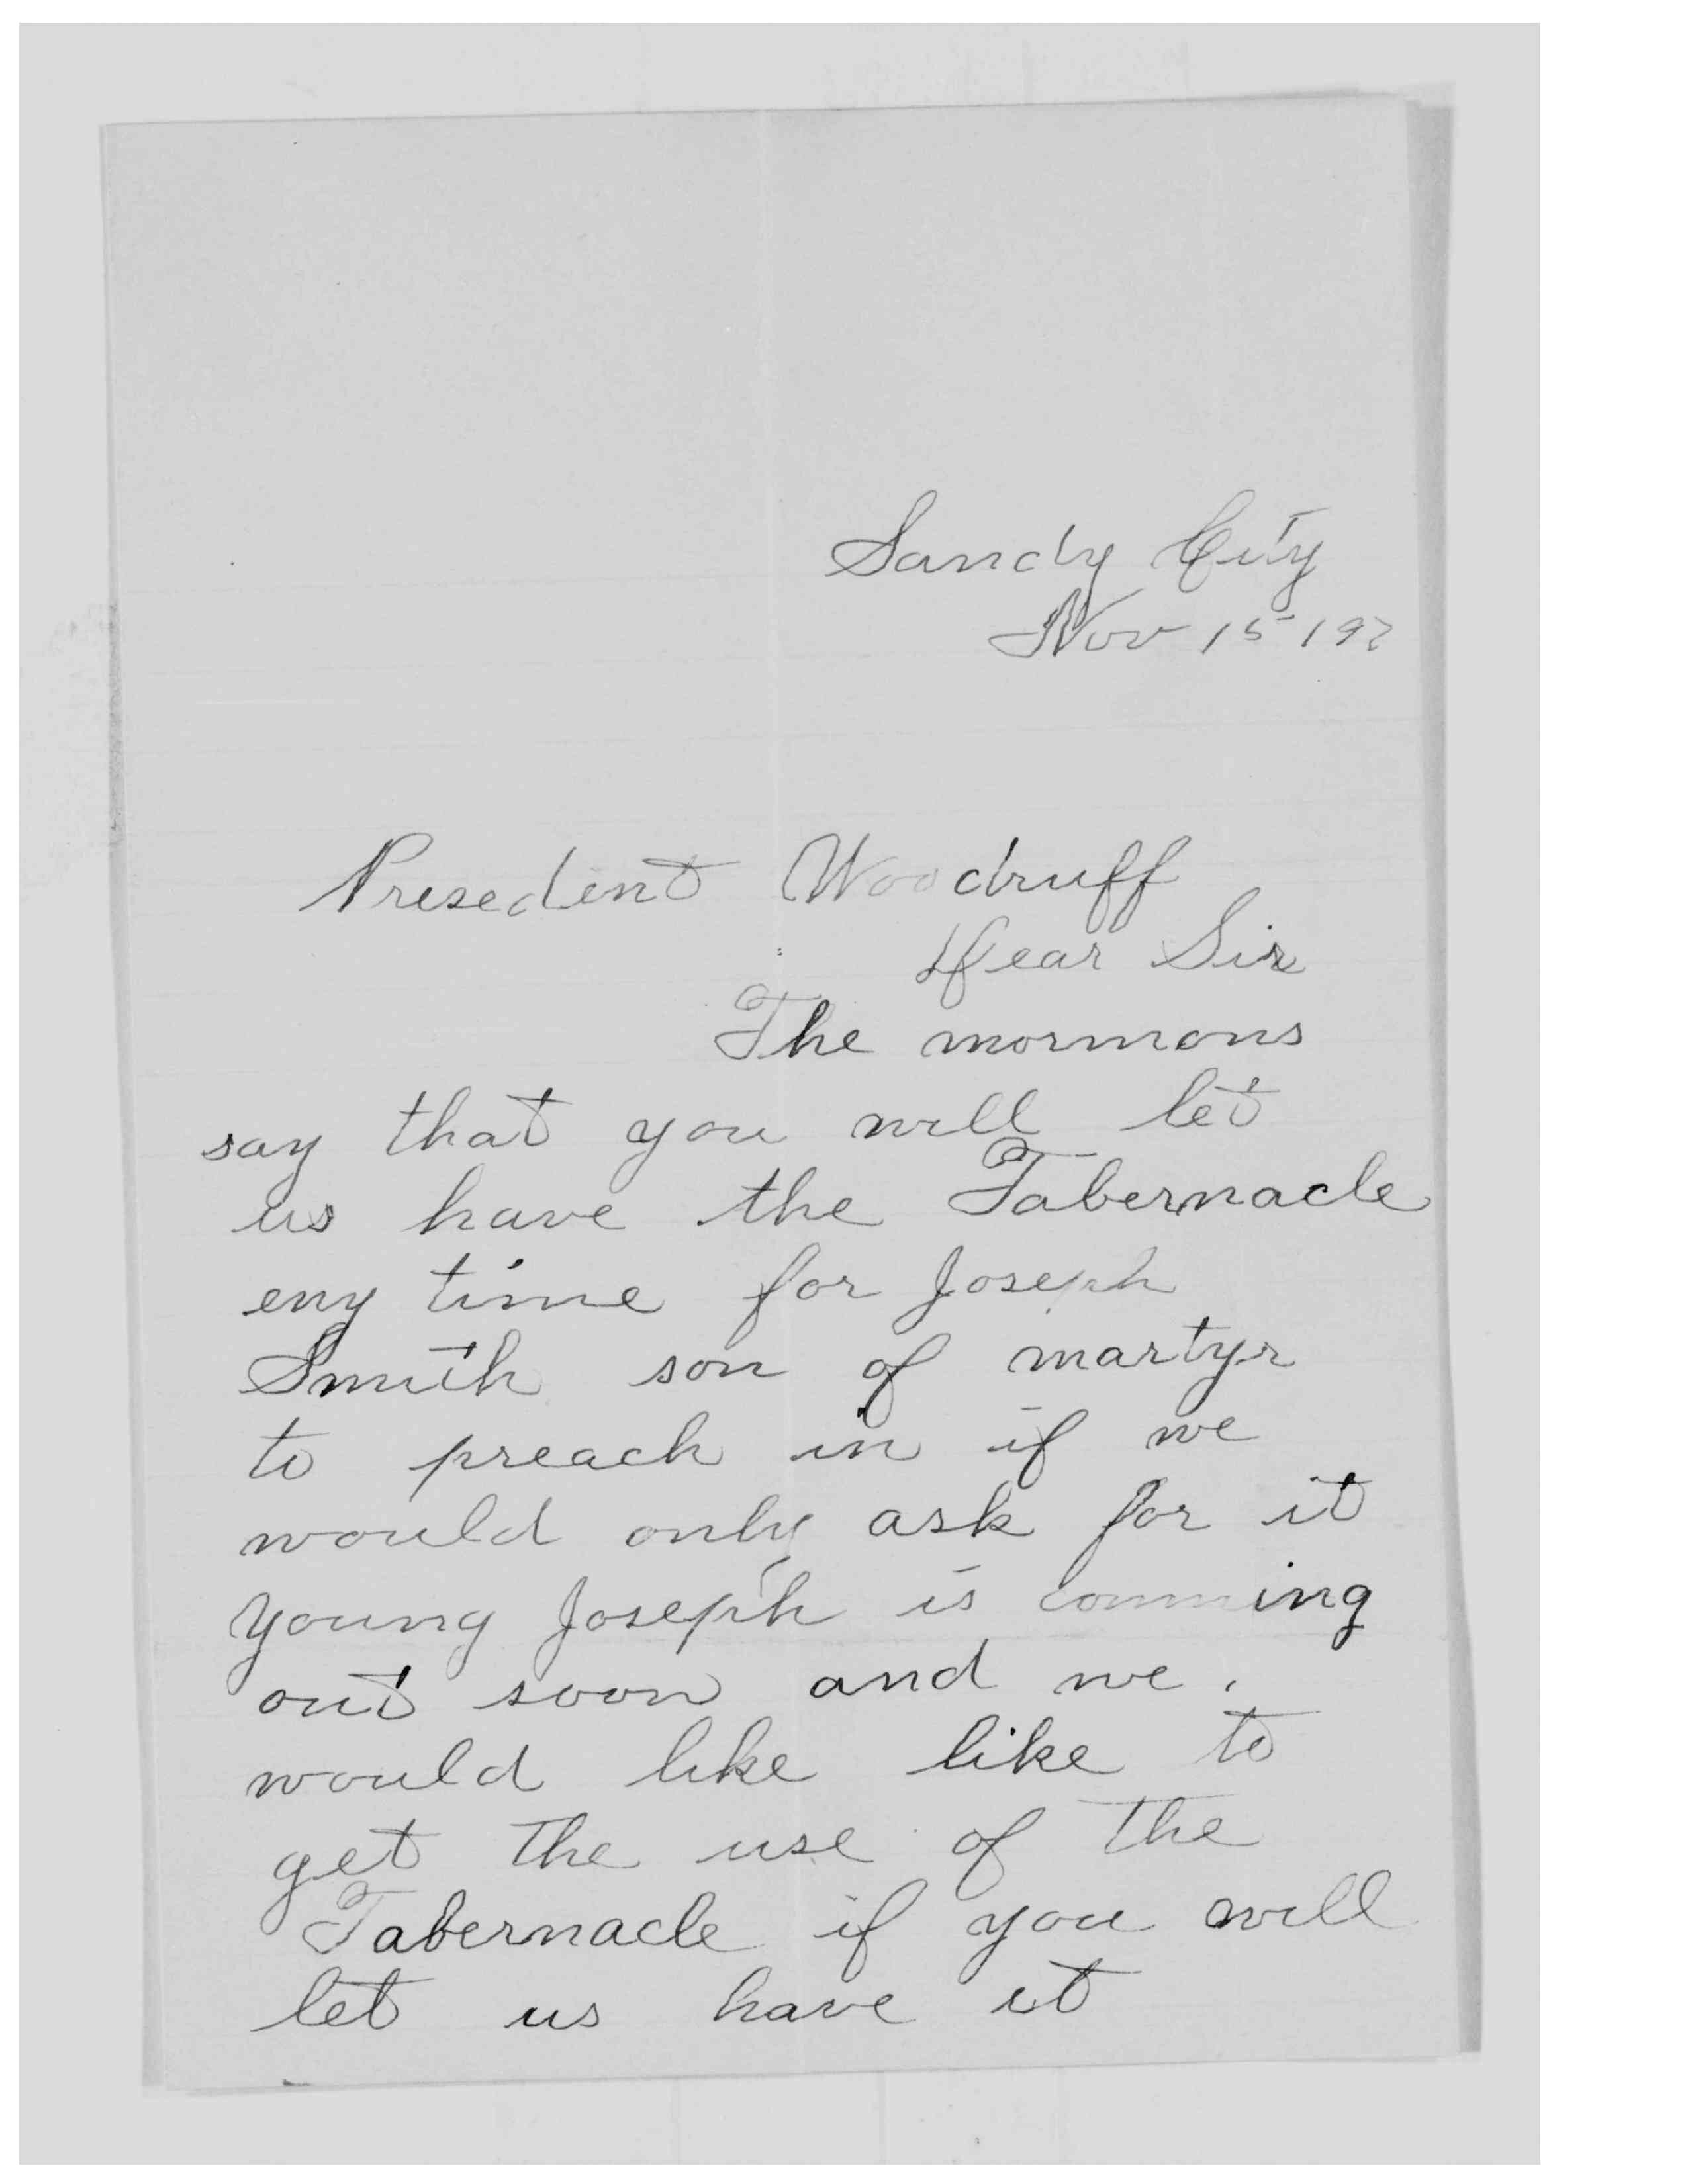 Sandy City
Nov 15 192
Presedent Woodruff
Dear Sir
The mormons
say that you will let
us have the Tabernacle
eny time for Joseph
Smith son of martyr
to preach in if we
would only ask for it
Young Joseph is comming
out soon and we.
would like like to
get the use of the
Tabernacle if you will
let us have it